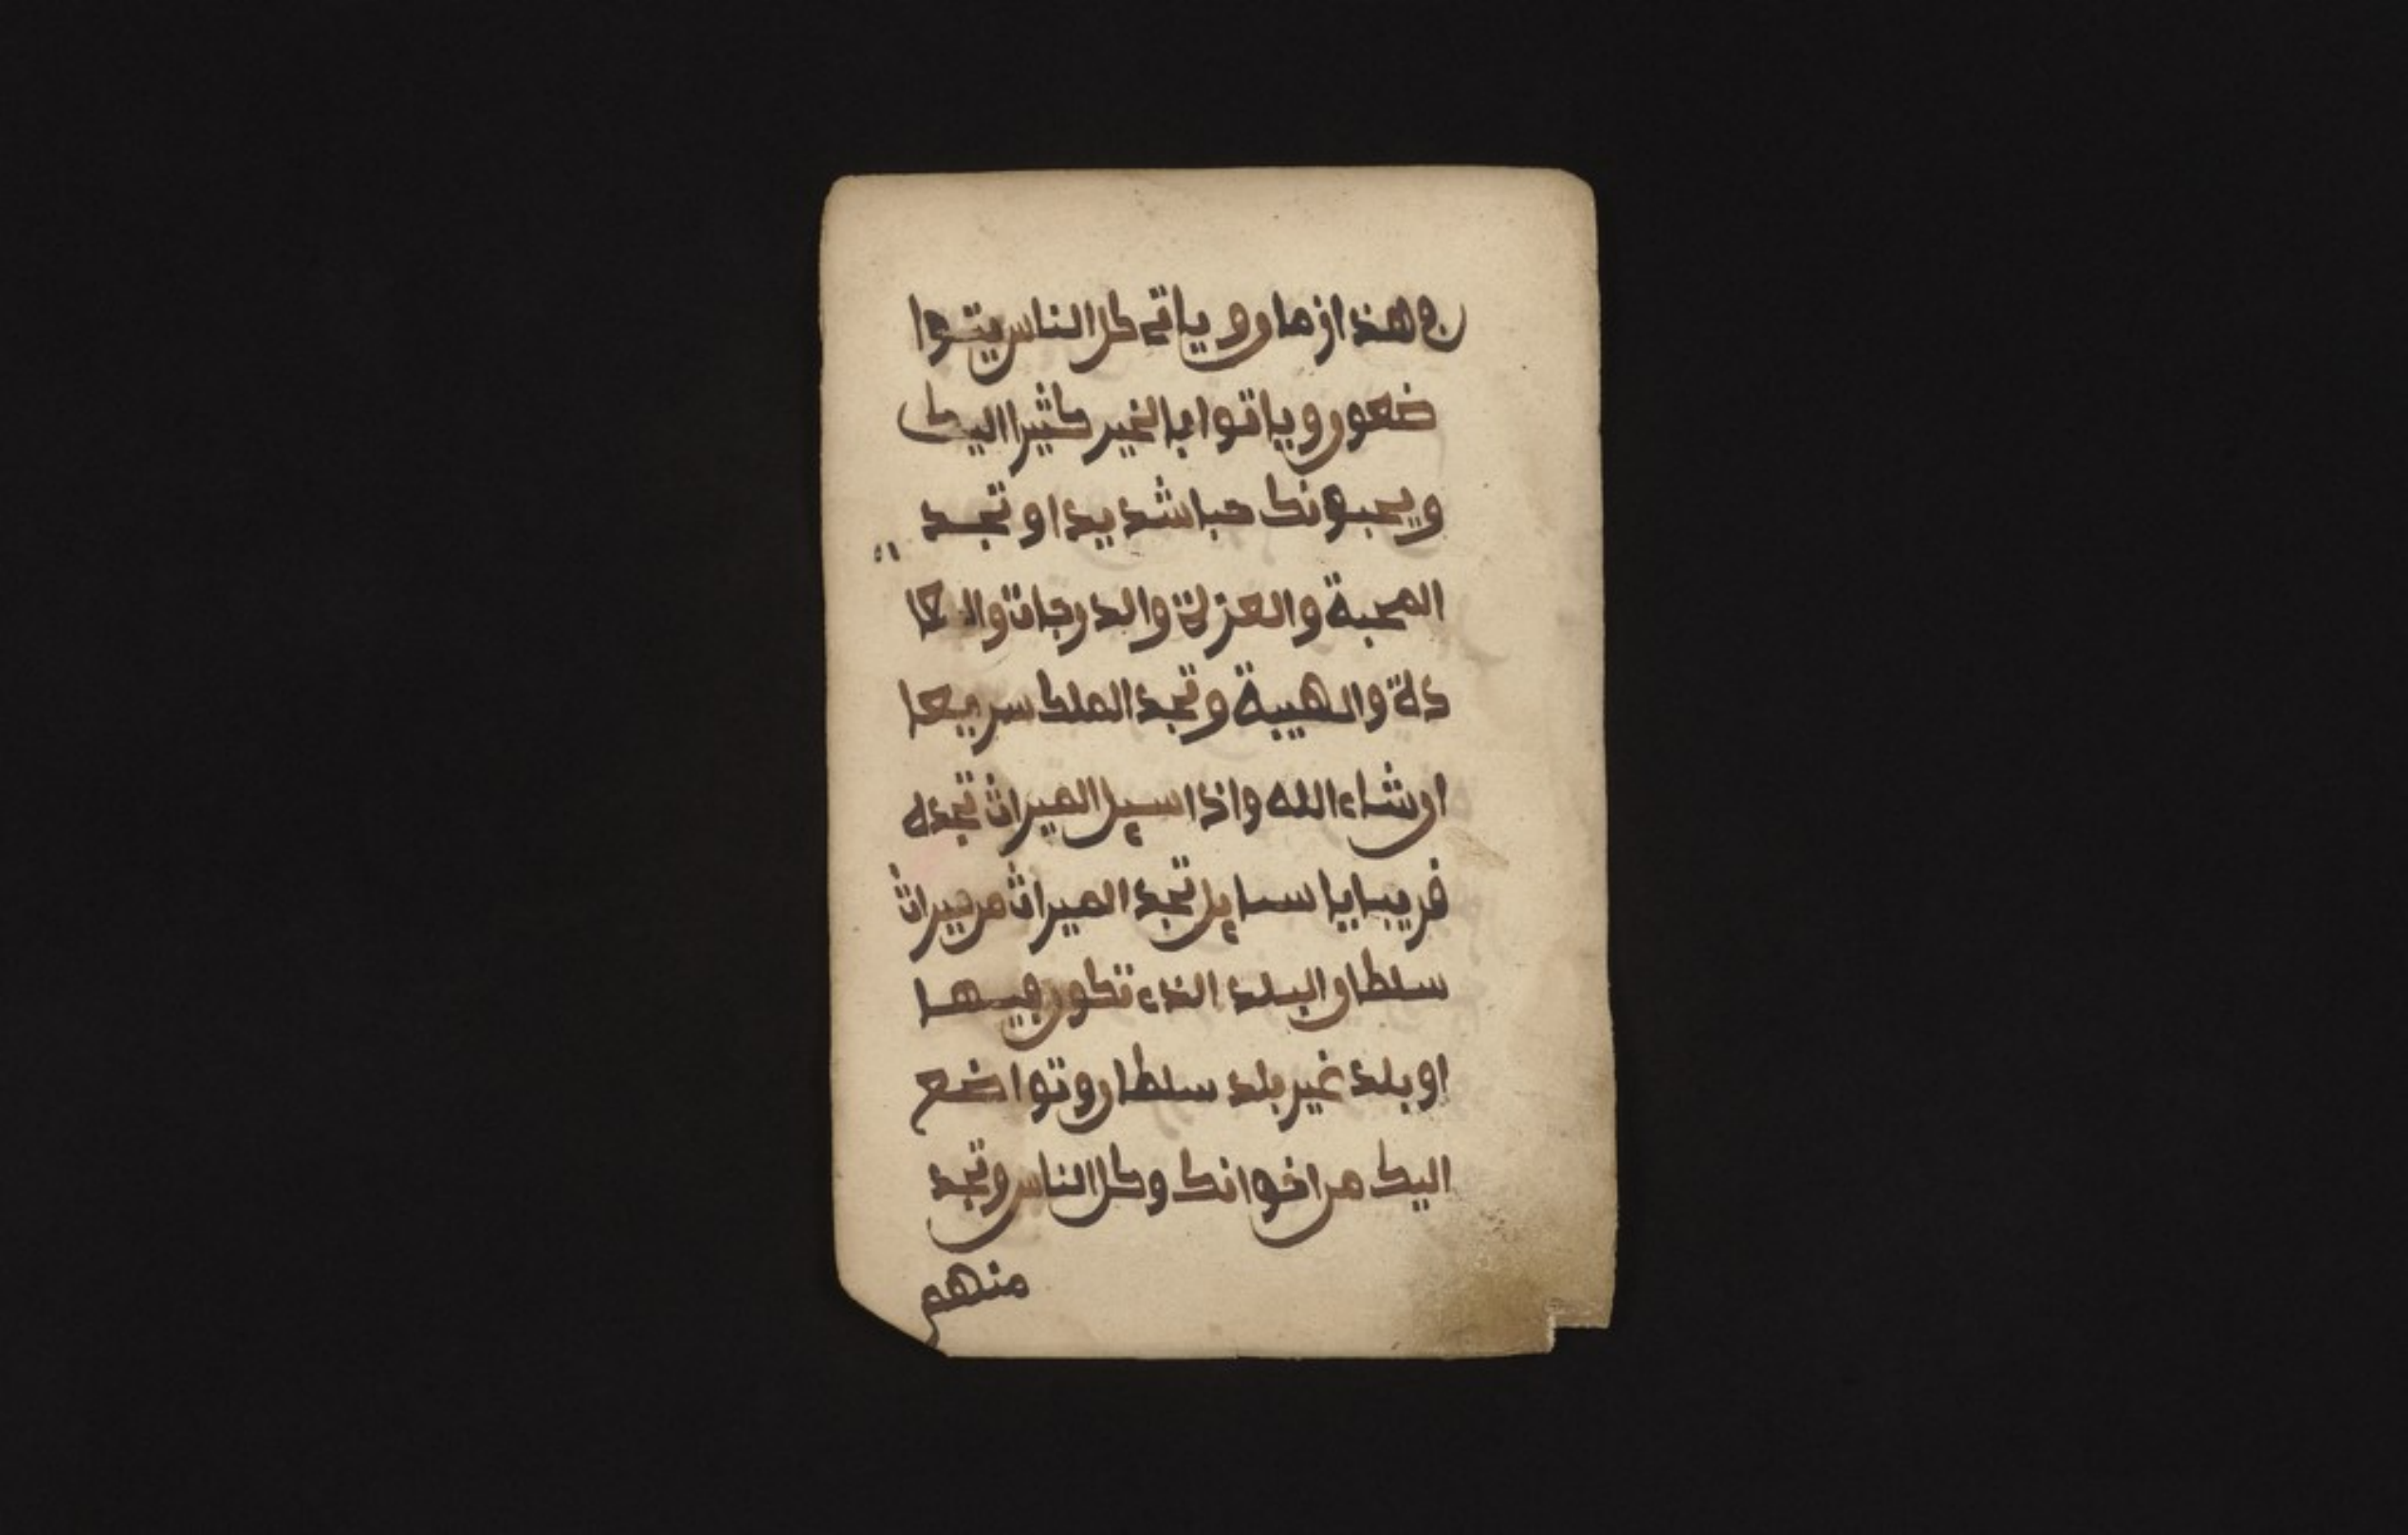 في هذا زمان ويأتي كل الناس يتوا
ضعون وياتوا بالخير كثيرا اليك
ويحبونك حبا شديدا وتجد
المحبة والعزلة والدرجات
دلة والهيبة وتجد الملك سريعا
ان شاء الله واذا سيل الميراث تجده
قريبا يا سايل تجد الميراث من ميراث
سلطان البلد الذي تكون فيها
او بلد غير بلد سلطان وتواضع
اليك من اخوانك وكل الناس وتجد
منهم